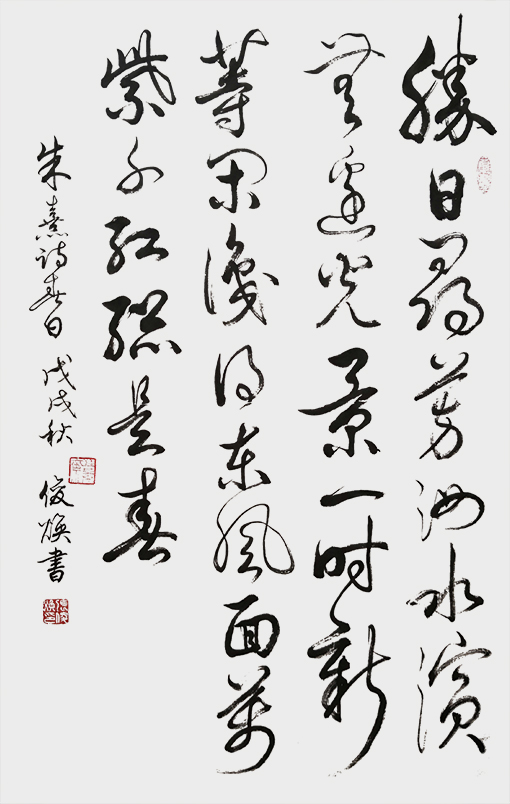 勝日尋芳泗水濱
無邊光景一時新
等閑識得東風面萬
紫千紅總是春
朱熹詩春日 戊戌秋 俊煥書